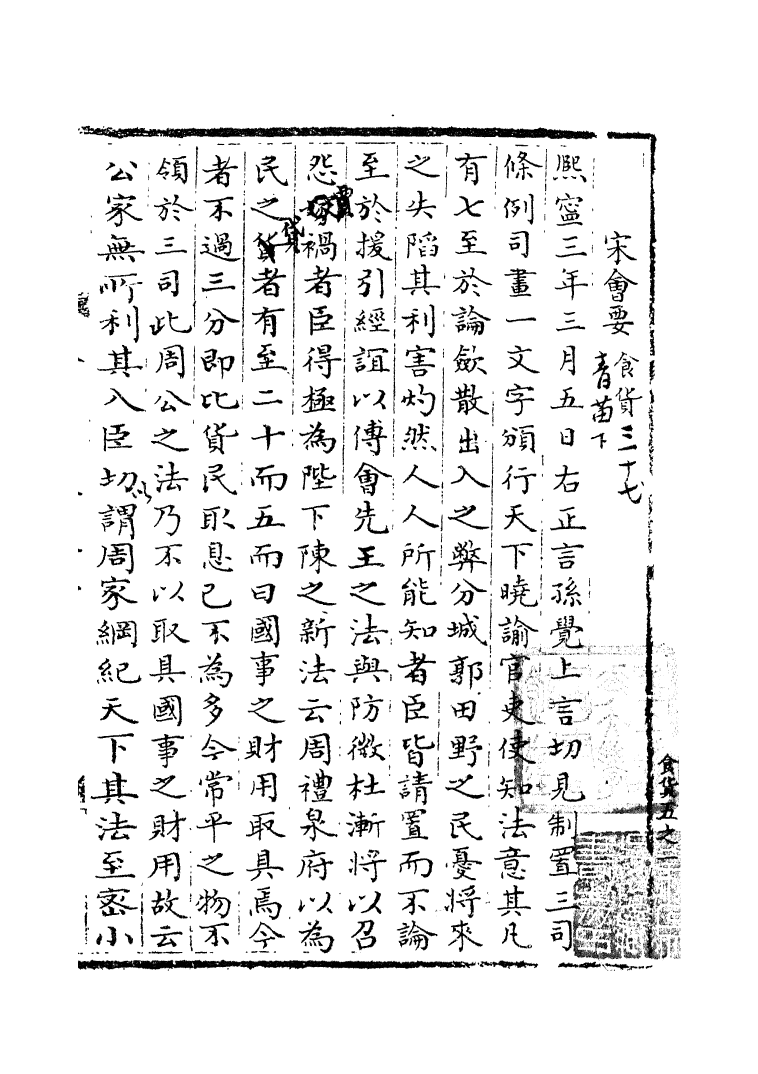 宋會要 食貨三十七
青苗下
熙寧三年三月五日右正言孫覺上言切見制置三司
條例司畫一文字頒行天下曉諭官吏使知法意其凡
有七至於論歛散出入之弊分城郭田野之民憂將來
之失陷其利害灼然人人所能知者臣皆請置而不論
至於援引經誼以傅會先王之法與防微杜漸將以召
怨賈禍者臣得極為陛下陳之新法云周禮泉府以為
民之貸者有至二十而五而曰國事之財用取具焉今
者不過三分即比貸民取息已不為多今常平之物不
領於三司此周公之法乃不以取具國事之財用故云
公家無所利其入臣切以謂周家綱紀天下其法至密小
食貨五之一